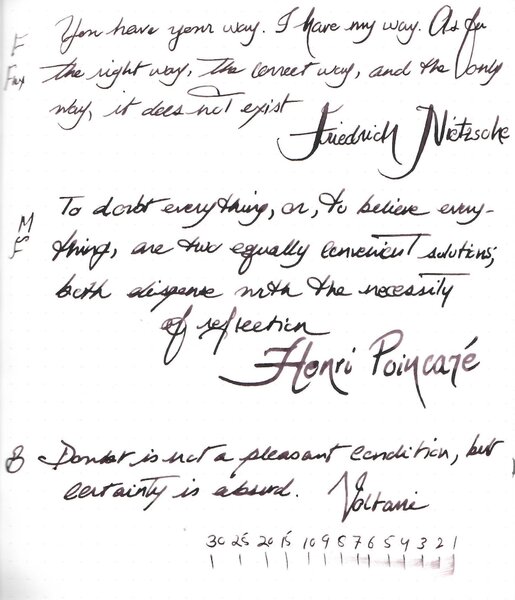 F You have your way. I have my way. As for
Flex the right way, the correct way, and the only
way, it does not exist
Friedrich Nietzsche
M To doubt everything, or, to believe every-
SF thing, are two equally convenient solutions;
both dispense with the necessity
of reflection
Henri Poincaré
B Doubt is not a pleasant condition, but
certainty is absurd. Voltaire
30 25 20 15 10 9 8 7 6 5 4 3 2 1